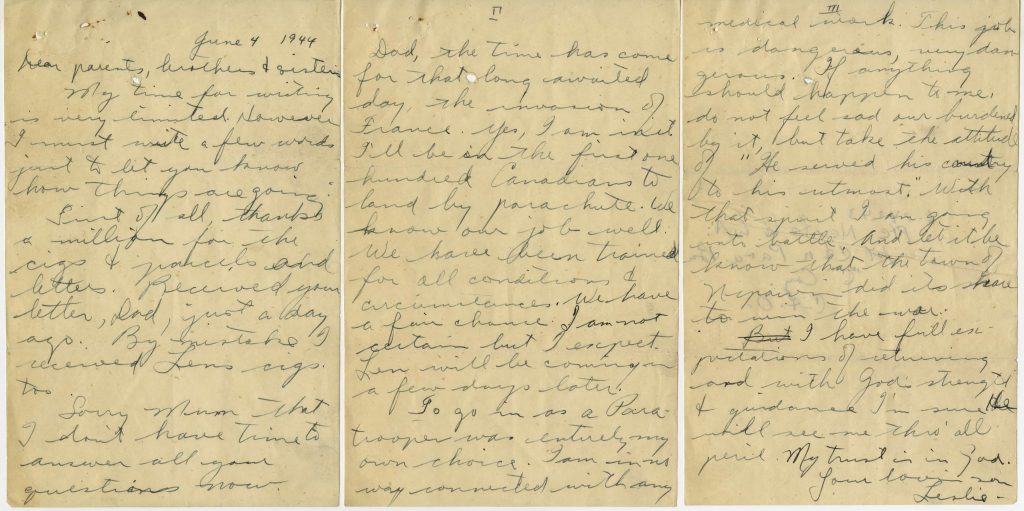 June 4 1944
Dear parents, brothers & sisters
My time for writing
is very limited. However
I must write a few words
just to let you know
how things are going.
First of all, thanks
a million for the
cigs & parcels and
letters. Received your
letter, Dad, just a day
ago. By mistake I
received Lens cigs.
too.
Sorry Mum that
I don't have time to
answer all your
questions now.
II
Dad, the time has come
for that long awaited
day, the invasion of
France. Yes, I am in it.
I'll be in the first one
hundred Canadians to
land by parachute. We
know our job well.
We have been trained
for all conditions &
circumstances. We have
a fair chance. I am not
certain but I expect
Len will be coming in
a few days later.
To go in as a Para-
trooper was entirely my
own choice. I am in no
way connected with any
III
medical work. This job
is dangerous, very dan-
gerous. If anything
should happen to me,
do not feel sad our burdened
by it, but take the attitude
of "He served his country
to his utmost." With
that spirit I am going
into battle. And let it be
known that the town of
Nipawin did its share
to win the war.
But I have full ex-
pectations of returning
and with God's strength
& guidance I'm sure He
will see me thro' all
peril. My trust is in God.
Your lovin son
Leslie -